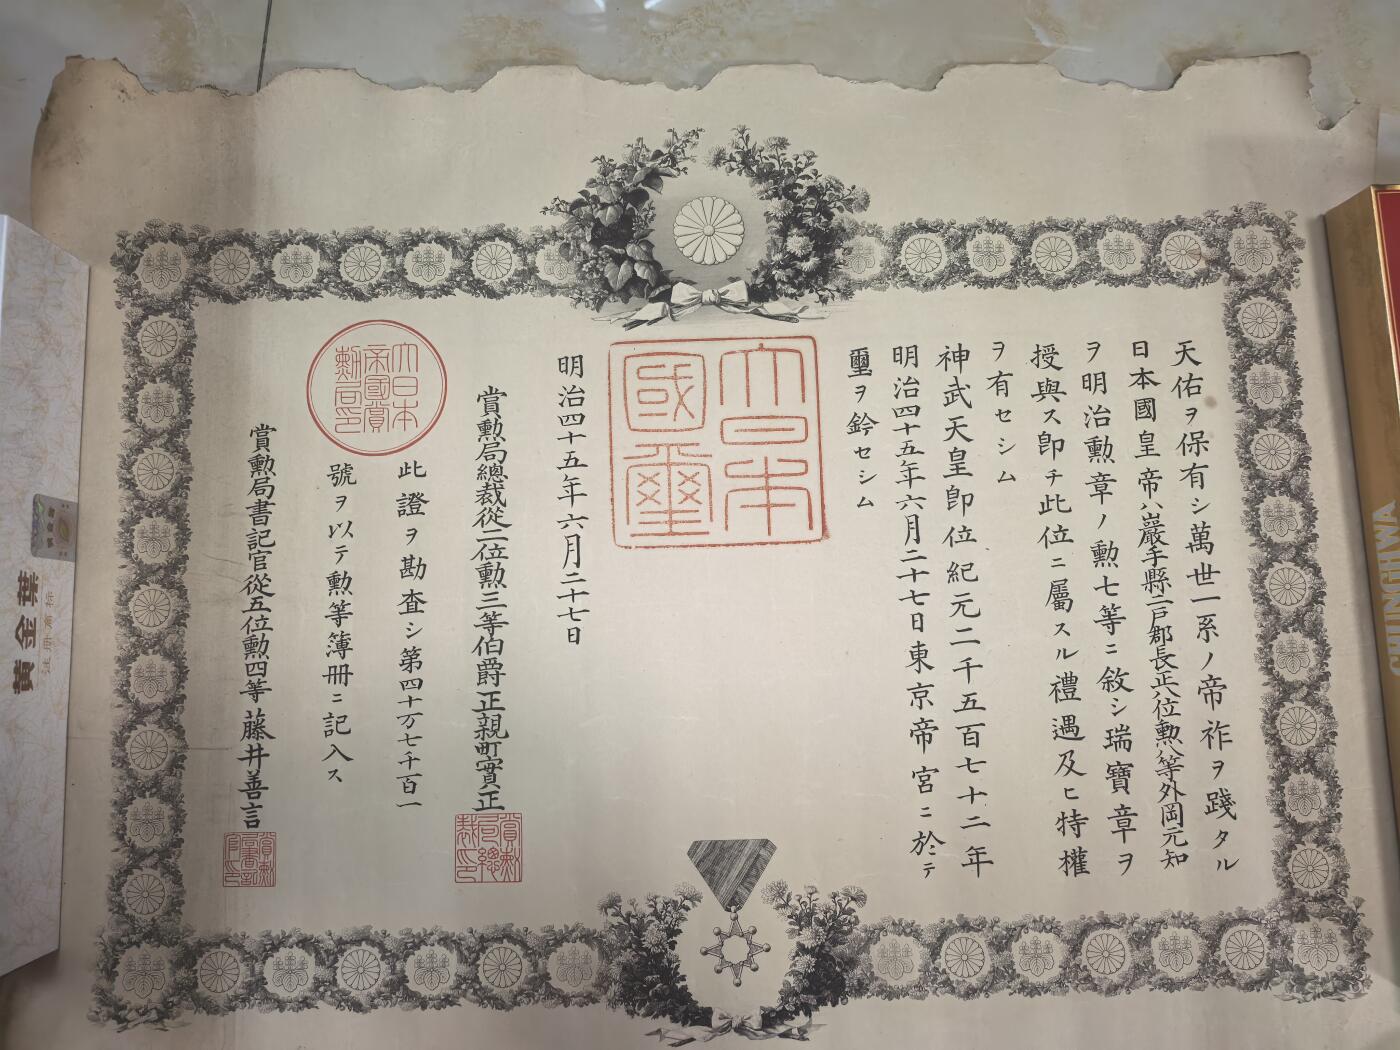 天佑ヲ保有シ萬世一系ノ帝祚ヲ踐タル
日本國皇帝ハ巖手縣二戸郡長正八位勲八等外岡元知
ヲ明治勲章ノ勲七等ニ敘シ瑞寶章ヲ
授與ス卽チ此位ニ屬スル禮遇及ヒ特權
ヲ有セシム
神武天皇卽位紀元二千五百七十二年
明治四十五年六月二十七日東京帝宮ニ於テ
璽ヲ鈐セシム
大日本
國璽
明治四十五年六月二十七日
賞勲局總裁從二位勲三等伯爵正親町實正
賞勲局總裁印
此證ヲ勘査シ第四十万七千百一
號ヲ以テ勲等簿册ニ記入ス
大日本
帝國賞
勲局印
賞勲局書記官從五位勲四等藤井善言
賞勲局書記官印
黄金葉
注册商标
CHUNGHWA